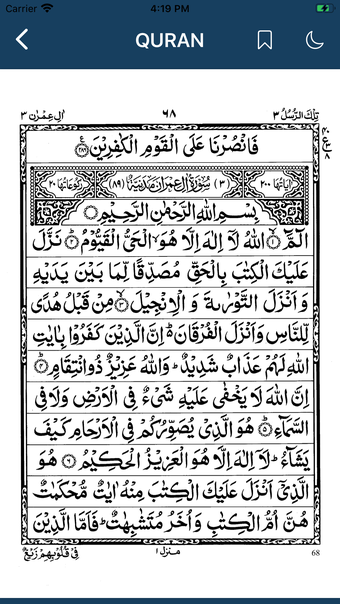 Carrier 4:19 PM
QURAN
تِلْكَ الرُّسُلُ ٣ ٦٨ اٰلِ عِمْرٰن ٣
فَانْصُرْنَا عَلَى الْقَوْمِ الْكٰفِرِيْنَ ﴿٢٨٦﴾
٤٠
ع
٨
اٰيَاتُهَا ٢٠٠ (٣) سُوْرَةُ اٰلِ عِمْرٰنَ مَدَنِيَّةٌ (٨٩) رُكُوْعَاتُهَا ٢٠
بِسْمِ اللّٰهِ الرَّحْمٰنِ الرَّحِيْمِ
الٓمّٓ ﴿١﴾ اللّٰهُ لَاۤ اِلٰهَ اِلَّا هُوَ الْحَىُّ الْقَيُّوْمُ ﴿٢﴾ نَزَّلَ
عَلَيْكَ الْكِتٰبَ بِالْحَقِّ مُصَدِّقًا لِّمَا بَيْنَ يَدَيْهِ
وَاَنْزَلَ التَّوْرٰىةَ وَ الْاِنْجِيْلَ ﴿٣﴾ مِنْ قَبْلُ هُدًى
لِّلنَّاسِ وَاَنْزَلَ الْفُرْقَانَ ؕ اِنَّ الَّذِيْنَ كَفَرُوْا بِاٰيٰتِ
اللّٰهِ لَهُمْ عَذَابٌ شَدِيْدٌ ؕ وَاللّٰهُ عَزِيْزٌ ذُوانْتِقَامٍ ﴿٤﴾
اِنَّ اللّٰهَ لَا يَخْفٰى عَلَيْهِ شَىْءٌ فِى الْاَرْضِ وَلَا فِى
السَّمَآءِ ﴿٥﴾ هُوَ الَّذِىْ يُصَوِّرُكُمْ فِى الْاَرْحَامِ كَيْفَ
يَشَآءُ ؕ لَاۤ اِلٰهَ اِلَّا هُوَ الْعَزِيْزُ الْحَكِيْمُ ﴿٦﴾ هُوَ
الَّذِىْۤ اَنْزَلَ عَلَيْكَ الْكِتٰبَ مِنْهُ اٰيٰتٌ مُّحْكَمٰتٌ
هُنَّ اُمُّ الْكِتٰبِ وَاُخَرُ مُتَشٰبِهٰتٌ ؕ فَاَمَّا الَّذِيْنَ
68 منزل ١ فِىْ قُلُوْبِهِمْ زَيْغٌ